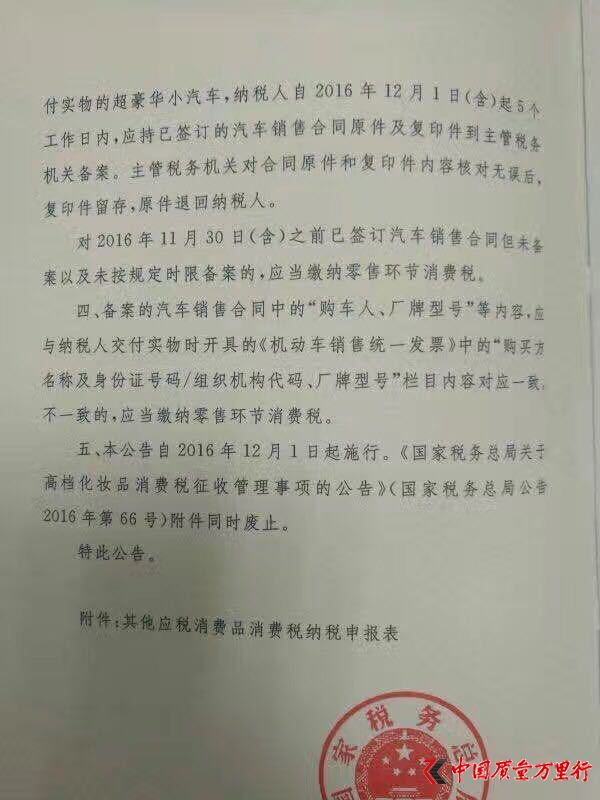 付实物的超豪华小汽车,纳税人自 2016 年 12 月 1 日(含)起 5 个
工作日内,应持已签订的汽车销售合同原件及复印件到主管税务
机关备案。主管税务机关对合同原件和复印件内容核对无误后,
复印件留存,原件退回纳税人。
对 2016 年 11 月 30 日(含)之前已签订汽车销售合同但未备
案以及未按规定时限备案的,应当缴纳零售环节消费税。
四、备案的汽车销售合同中的“购车人、厂牌型号”等内容,应
与纳税人交付实物时开具的《机动车销售统一发票》中的“购买方
名称及身份证号码/组织机构代码、厂牌型号”栏目内容对应一致。
不一致的,应当缴纳零售环节消费税。
五、本公告自 2016 年 12 月 1 日起施行。《国家税务总局关于
高档化妆品消费税征收管理事项的公告》(国家税务总局公告
2016 年第 66 号)附件同时废止。
特此公告。
附件:其他应税消费品消费税纳税申报表
国家税务总局
中国质量万里行